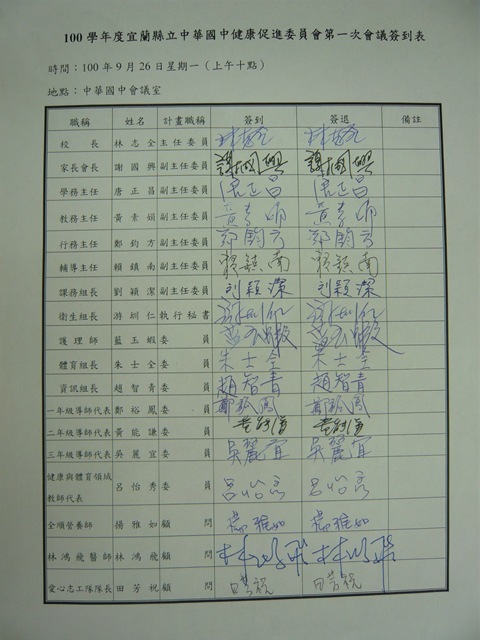 100 學年度宜蘭縣立中華國中健康促進委員會第一次會議簽到表
時間：100 年 9 月 26 日星期一（上午十點）
地點：中華國中會議室
職稱 姓名 計畫職稱 簽到 簽退 備註
校長 林志全 主任委員 林志全 林志全
家長會長 謝國興 副主任委員 謝國興 謝國興
學務主任 唐正昌 副主任委員 唐正昌 唐正昌
教務主任 黃素娟 副主任委員 黃素娟 黃素娟
行務主任 鄭鈞方 副主任委員 鄭鈞方 鄭鈞方
輔導主任 賴鎮南 副主任委員 賴鎮南 賴鎮南
課務組長 劉穎潔 副主任委員 刘穎潔 刘穎潔
衛生組長 游圳仁 執行秘書 游圳仁 游圳仁
護理師 藍玉蝦 委員 藍玉蝦 藍玉蝦
體育組長 朱士全 委員 朱士全 朱士全
資訊組長 趙智青 委員 趙智青 趙智青
一年級導師代表 鄭裕鳳 委員 鄭裕鳳 鄭裕鳳
二年級導師代表 黃能謙 委員 黃能謙 黃能謙
三年級導師代表 吳麗宜 委員 吳麗宜 吳麗宜
健康與體育領域
教師代表 呂怡秀 委員 呂怡秀 呂怡秀
全順營養師 楊雅如 顧問 楊雅如 楊雅如
林鴻飛醫師 林鴻飛 顧問 林鴻飛 林鴻飛
愛心志工隊隊長 田芳祝 顧問 田芳祝 田芳祝